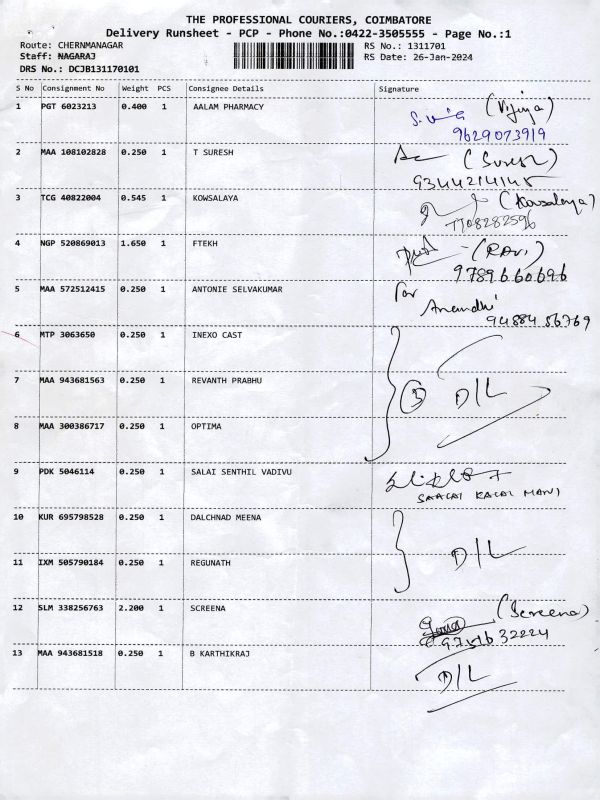 THE PROFESSIONAL COURIERS, COIMBATORE
Delivery Runsheet - PCP - Phone No.:0422-3505555 - Page No.:1
Route: CHERNMANAGAR RS No.: 1311701
Staff: NAGARAJ RS Date: 26-Jan-2024
DRS No.: DCJB131170101
S No Consignment No Weight PCS Consignee Details Signature
1 PGT 6023213 0.400 1 AALAM PHARMACY (Vijiya)
9629073919
2 MAA 108102828 0.250 1 T SURESH (Suresh)
9344214145
3 TCG 40822004 0.545 1 KOWSALAYA (Kowsalaya)
7708282596
4 NGP 520869013 1.650 1 FTEKH (RAVI)
9789660696
5 MAA 572512415 0.250 1 ANTONIE SELVAKUMAR For
Anandhi
94884 56769
6 MTP 3063650 0.250 1 INEXO CAST
7 MAA 943681563 0.250 1 REVANTH PRABHU 3 D/L
8 MAA 300386717 0.250 1 OPTIMA
9 PDK 5046114 0.250 1 SALAI SENTHIL VADIVU
10 KUR 695798528 0.250 1 DALCHNAD MEENA
D/L
11 IXM 505790184 0.250 1 REGUNATH
12 SLM 338256763 2.200 1 SCREENA (Screena)
32224
13 MAA 943681518 0.250 1 B KARTHIKRAJ D/L